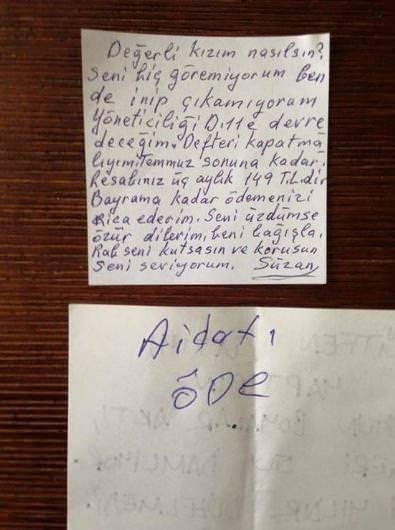 Değerli kızım nasılsın?
Seni hiç göremiyorum ben
de inip çıkamıyorum
Yöneticiliği D.11 e devre
deceğim. Defteri kapatma
lıyım. Temmuz sonuna kadar.
Hesabınız üç aylık 149 TL.dir
Bayrama kadar ödemenizi
Rica ederim. Seni üzdümse
özür dilerim, beni bağışla.
Rab seni kutsasın ve korusun
Seni seviyorum. Süzan
Aidatı
ÖDe